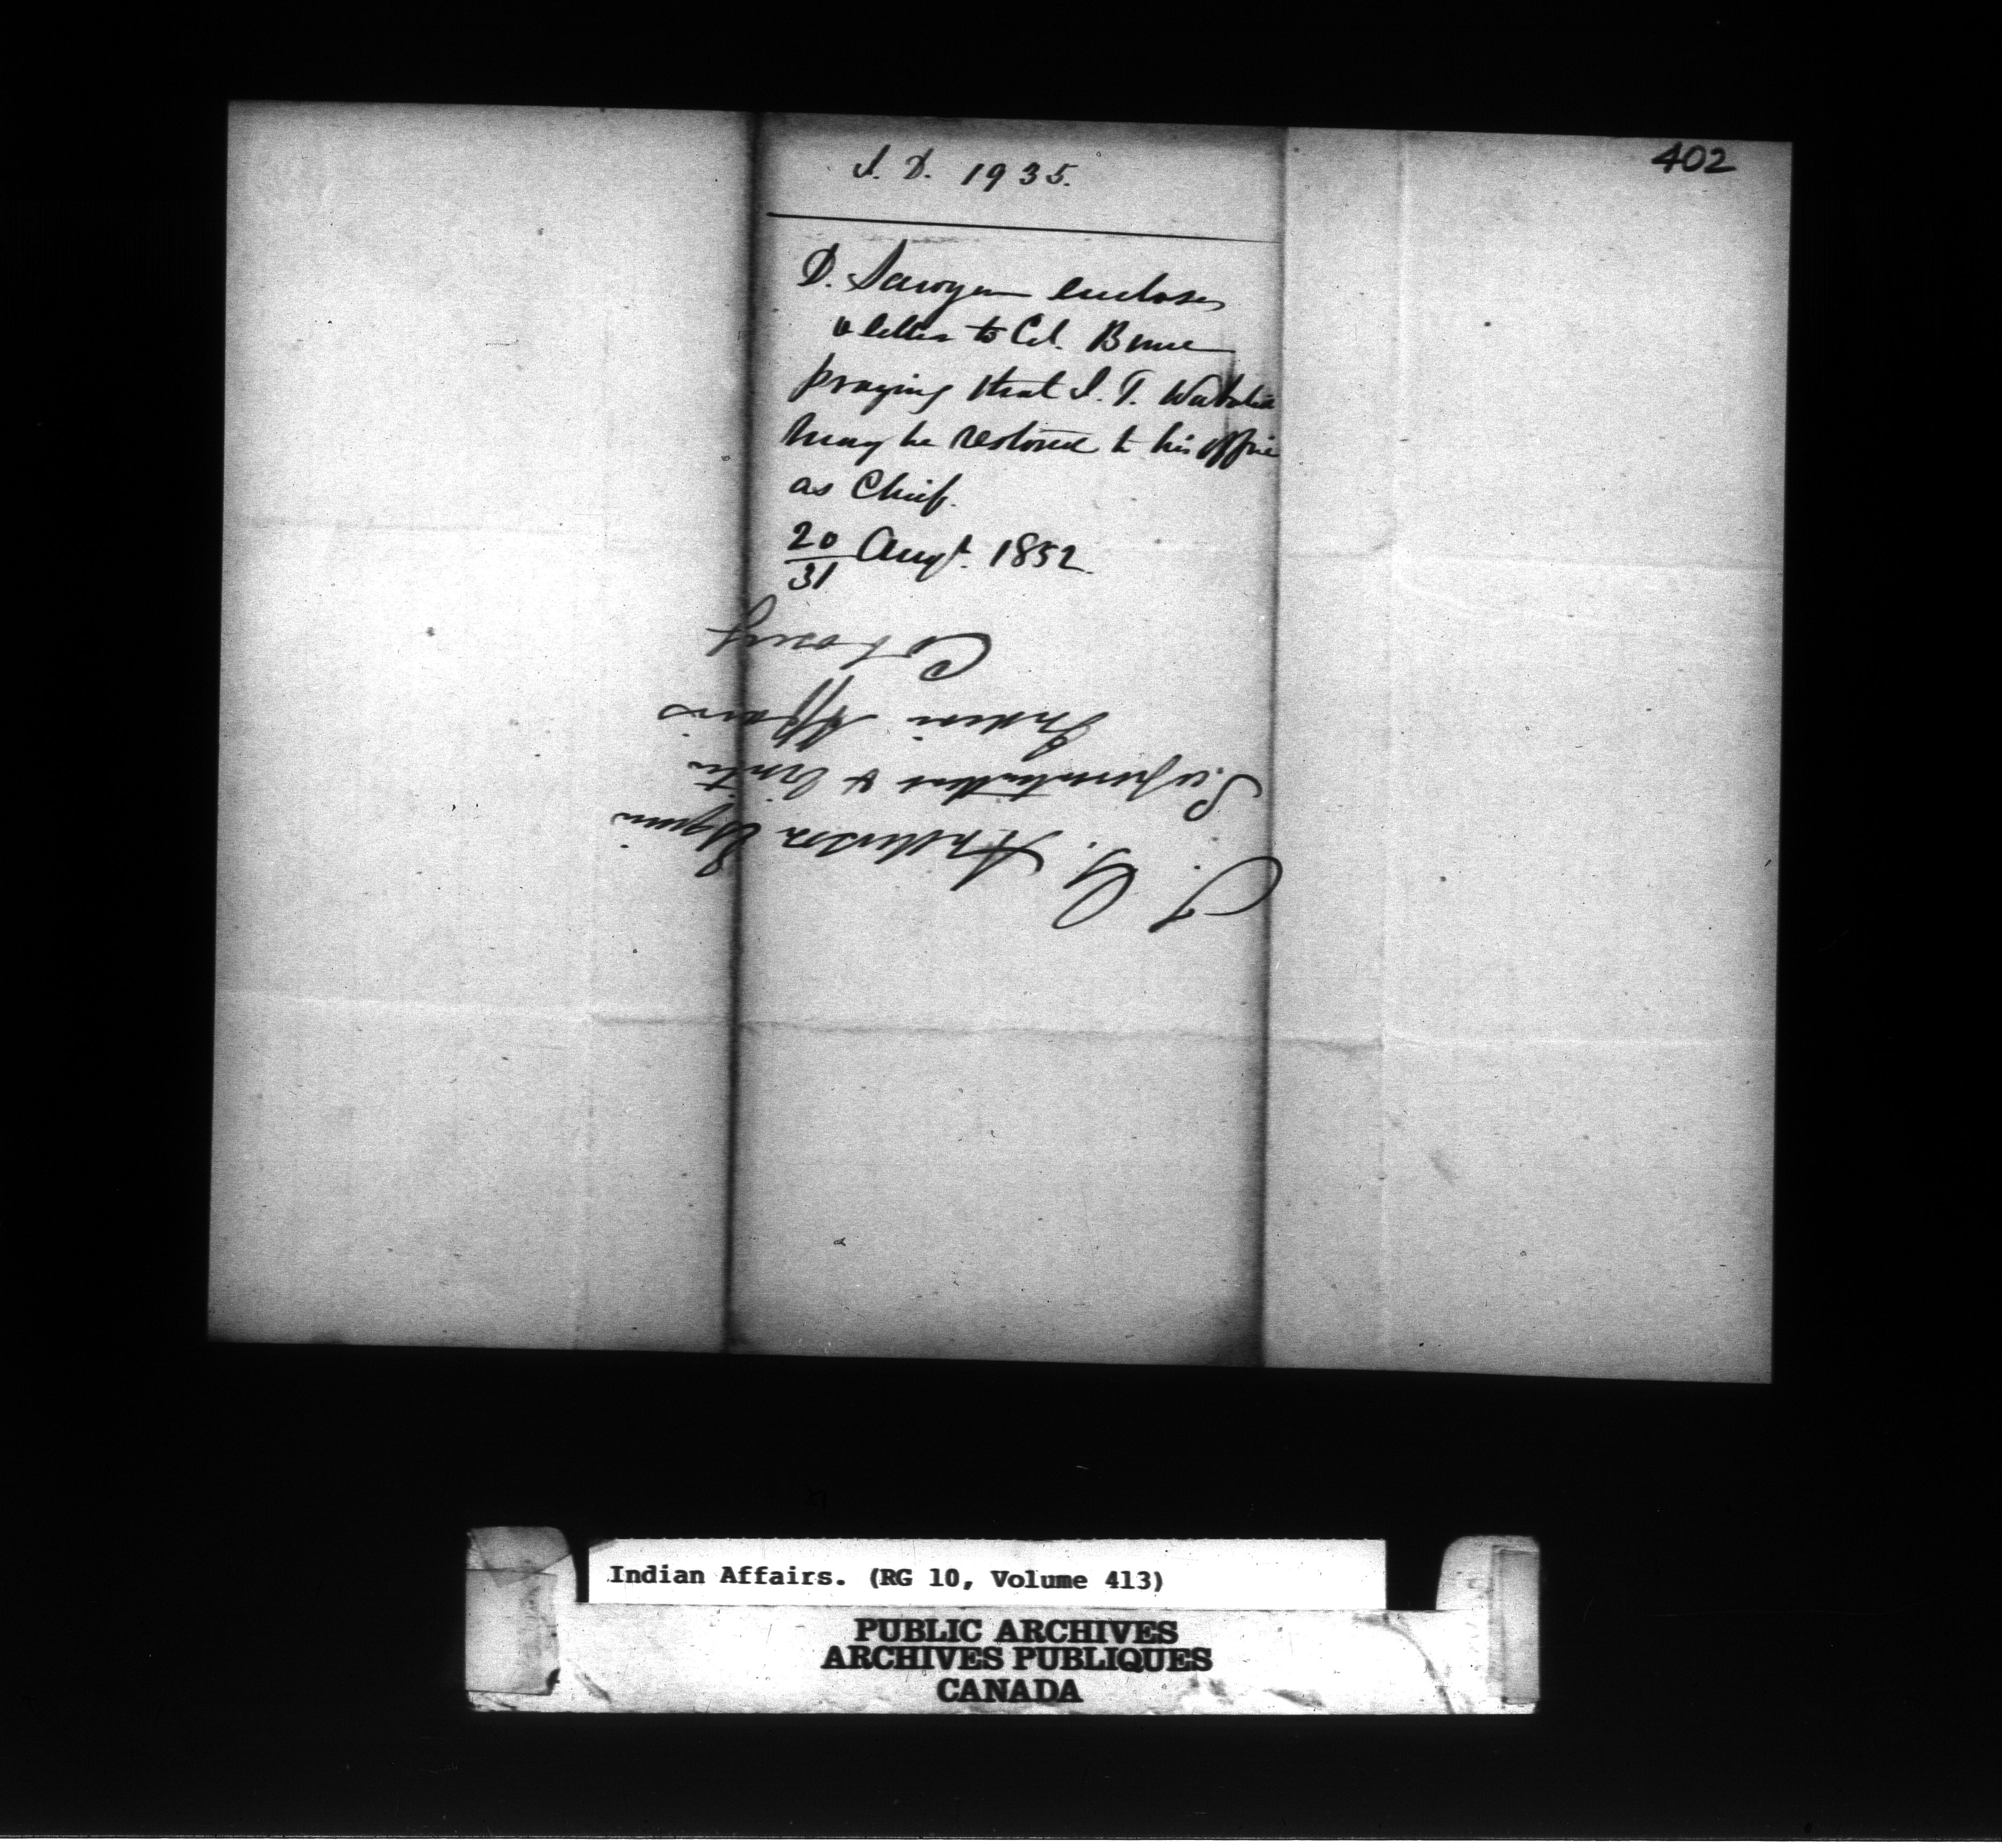 402
I. D. 1935.
D. Sawyer encloses
a letter to Col. Bruce
praying that I. T.
may be restored to his office
as Chief.
20/31 Augt. 1852.
T. G. Anderson Esquire
Superintendent &
Indian Affairs
Cobourg
Indian Affairs. (RG 10, Volume 413)
PUBLIC ARCHIVES
ARCHIVES PUBLIQUES
CANADA